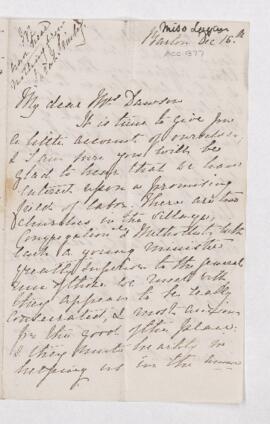 Miss Logan
Barton Dec 16th
ACC 1377
My dear Mrs Dawson
It is time to give you
a little account of ourselves
& I am sure you will be
glad to hear that we have
entered upon a promising
field of labor. There are two
Churches in the village,
Congregational & Methodist, both
with a young minister
greatly superior to the general
run of those we meet with
They appear to be really
consecrated, & most anxious
for the good of the place.
& they unite heartily in
helping us in the